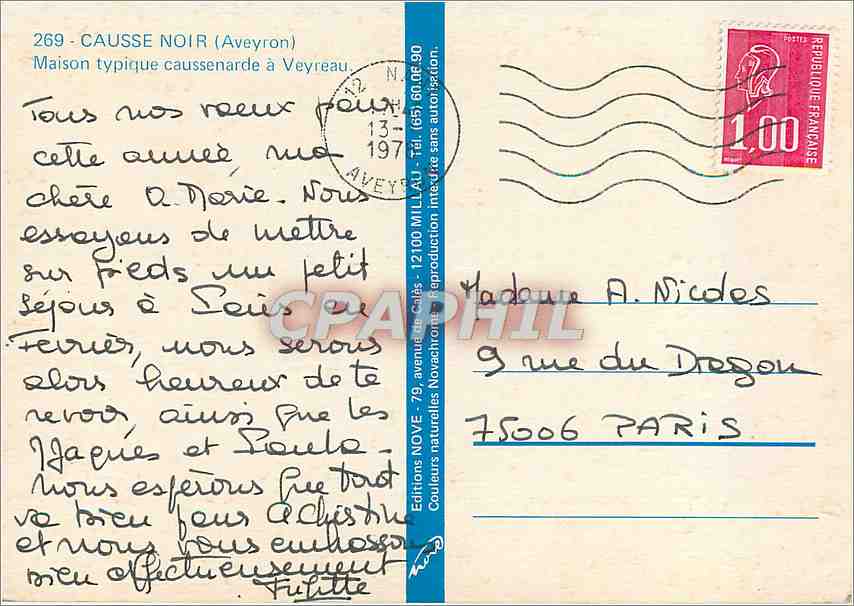 269 - CAUSSE NOIR (Aveyron)
Maison typique caussenarde à Veyreau.
Tous nos voeux pour
cette année, ma
chère A. Marie - Nous
essayons de mettre
sur pieds un petit
séjour à Paris en
Fevrier, nous serons
alors heureux de te
revoir, ainsi que les
Jaques et Paula -
nous espérons que tout
va bien pour
et nous vous embrassons
bien affectueusement
12
13-
AVEYRON
Editions NOVE - 79, avenue de Calès - 12100 MILLAU - Tél. (65) 60.06.90
Couleurs naturelles Novachrome - Reproduction interdite sans autorisation.
nove
REPUBLIQUE FRANÇAISE
POSTES
1,00
Madame A. Nicolas
9 rue du Dragon
75006 PARIS
CPAPHIL